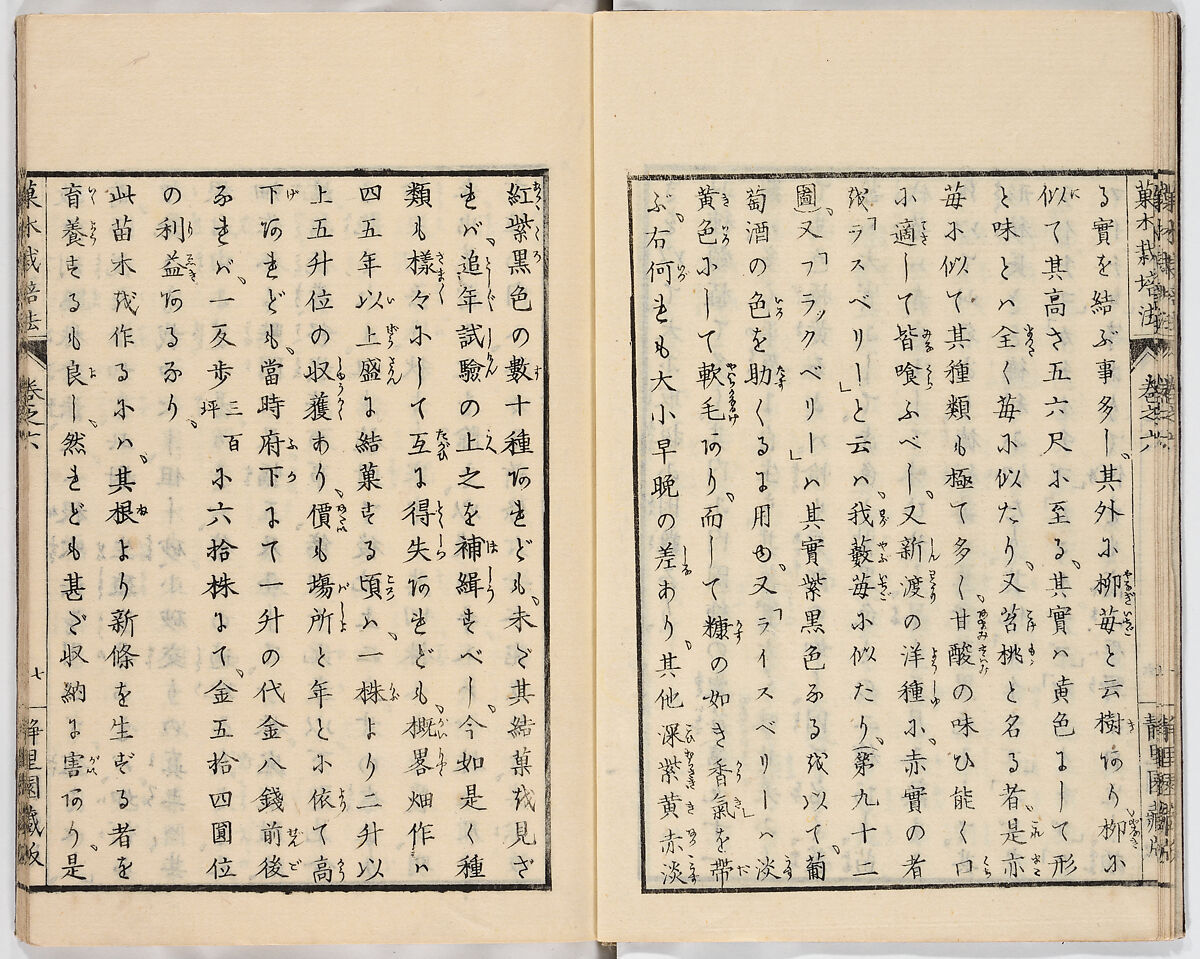 菓木栽培法 卷之六 静里園藏版
る實を結ぶ事多し、其外ふ柳苺と云樹あり柳ふ
似て其高さ五六尺ふ至る、其實ハ黄色ゟして形
と味とハ全く苺ふ似たり、又苔桃と名る者是亦
苺ふ似て其種類も極て多く、甘酸の味ひ能く口
ふ適して皆喰ふべし、又新渡の洋種ふ、赤實の者
を「ラスベリー」と云ハ、我藪苺ふ似たり、(第九十二
圖)、又「フラックベリー」ハ其實紫黒色なるを以て、葡
萄酒の色を助くるに用ゆ、又「ライスベリー」ハ淡
黄色ふして軟毛あり、而して糠の如き香氣を帶
ぶ、右何れも大小早晩の差あり、其他深紫黄赤淡
紅紫黒色の數十種あれども、未ざ其結菓を見ざ
れバ、追年試驗の上之を補緝すべし、今如是く種
類も樣々ふして互に得失あれども、概畧畑作ハ
四五年以上盛に結菓する頃ハ、一株より二升以
上五升位の収獲あり、價も塲所と年と以ふ依て高
下あれども、當時府下にて一升の代金八錢前後
なれバ、一反歩三百坪ふ六拾株にて、金五拾四圓位
の利益あるなり、
此苗木を作るふハ、其根より新條を生ずる者を
育養するも良し、然れども甚ざ収納に害あり、是
菓木栽培法 卷之六 七 静里園藏版